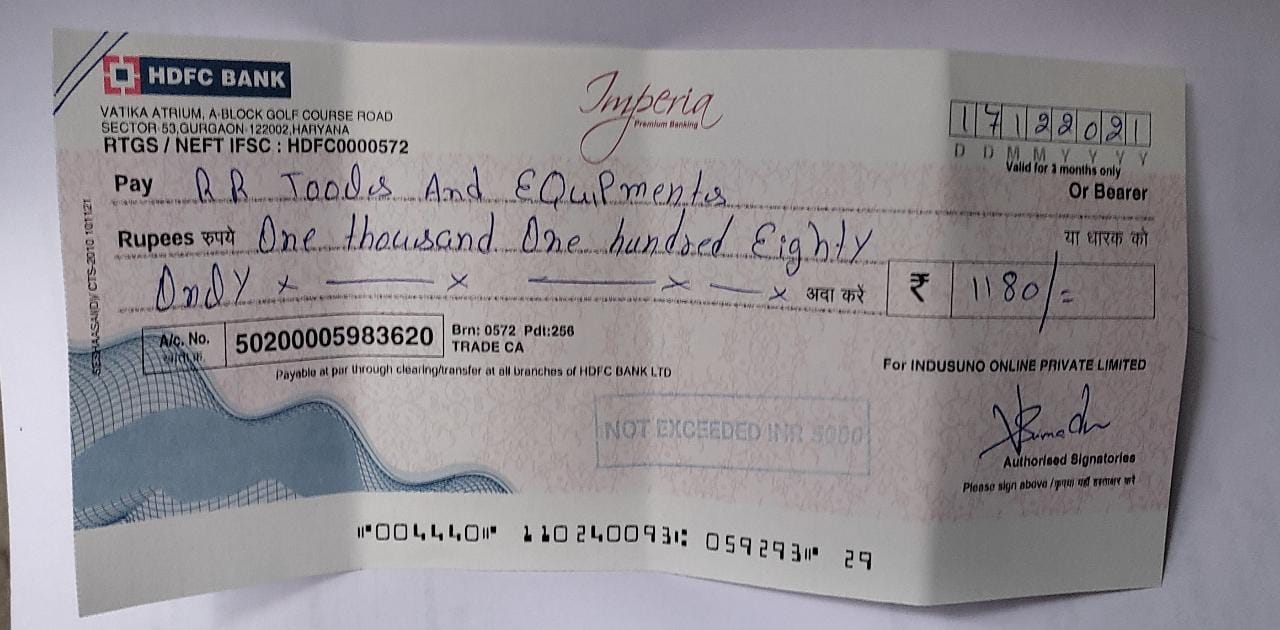 HDFC BANK
Imperia
Premium Banking
VATIKA ATRIUM, A-BLOCK GOLF COURSE ROAD
SECTOR-53,GURGAON-122002,HARYANA
RTGS / NEFT IFSC : HDFC0000572
17122021
D D M M Y Y Y Y
Valid for 3 months only
Pay RR Toods And EQuiPments
Or Bearer
Rupees रुपये One thousand One hundred Eighty
या धारक को
OnlY x — x — x — x अदा करें ₹ 1180/=
A/c. No. 50200005983620
Brn: 0572 Pdt:256
TRADE CA
Payable at par through clearing/transfer at all branches of HDFC BANK LTD
For INDUSUNO ONLINE PRIVATE LIMITED
NOT EXCEEDED INR 5000
Authorised Signatories
Please sign above /कृपया यहाँ हस्ताक्षर करें
⑈004440⑈ 110240093⑆ 059293⑈ 29